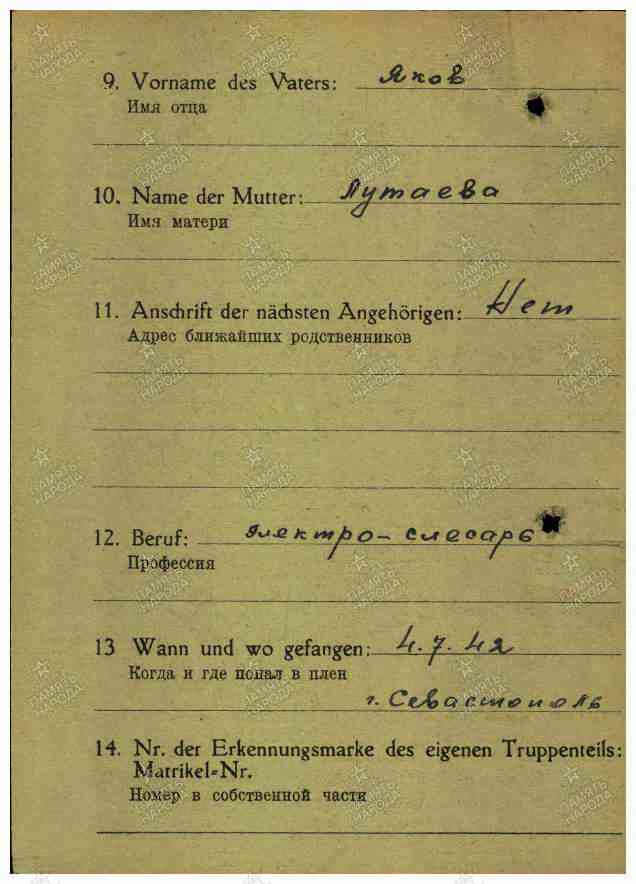 9. Vorname des Vaters: Яков
Имя отца
10. Name der Mutter: Лутаева
Имя матери
11. Anschrift der nächsten Angehörigen: Нет
Адрес ближайших родственников
12. Beruf: электро-слесарь
Профессия
13 Wann und wo gefangen: 4.7.42
Когда и где попал в плен
г. Севастополь
14. Nr. der Erkennungsmarke des eigenen Truppenteils:
Matrikel=Nr.
Номер в собственной части
ПАМЯТЬ
НАРОДА